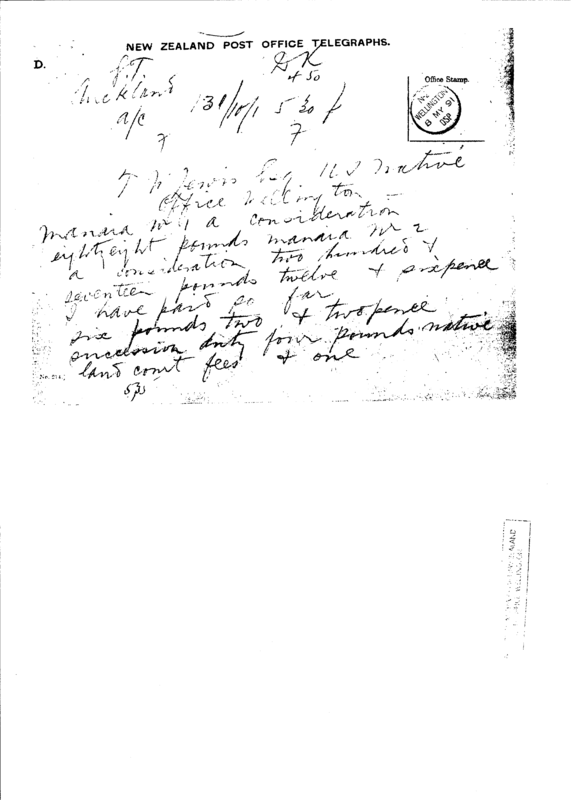 NEW ZEALAND POST OFFICE TELEGRAPHS.
D.
Office Stamp.
WELLINGTON
8 MY 91
Auckland
a/c
T W Lewis Esq U S Native
Office Wellington
Manaia No 1 a consideration
eightyeight pounds manaia No 2
a consideration two hundred &
seventeen pounds twelve & sixpence
I have paid so far
six pounds two & twopence
succession duty four pounds native
land court fees & one